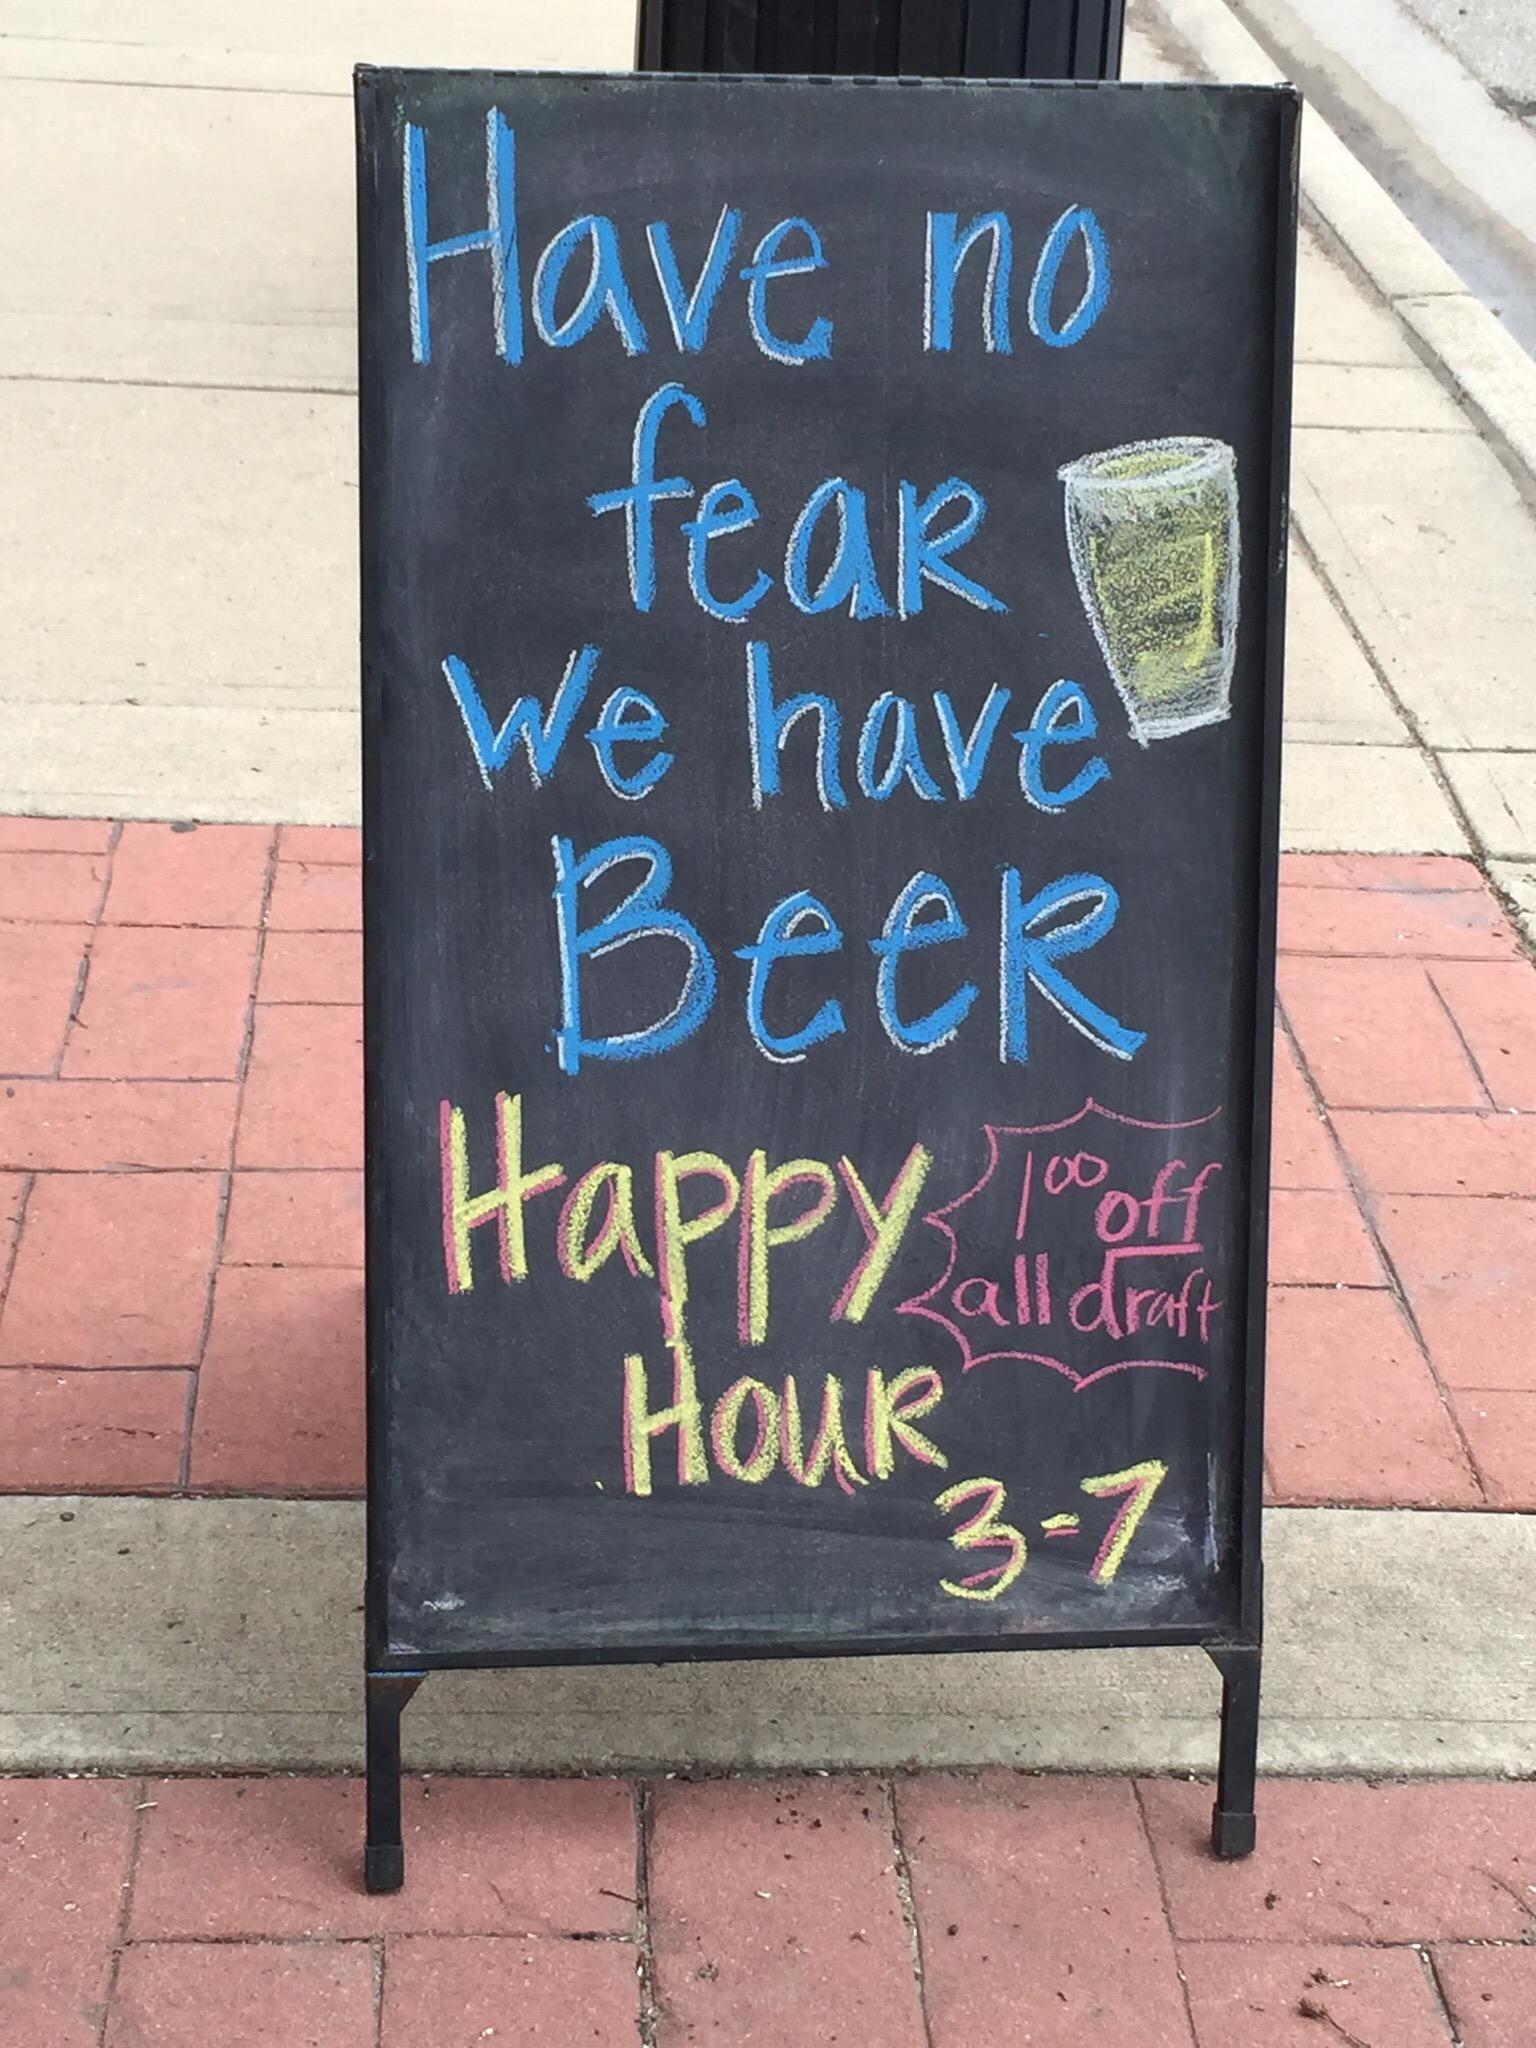 Have no
fear
we have
Beer
Happy
1⁰⁰ off
all draft
Hour
3-7